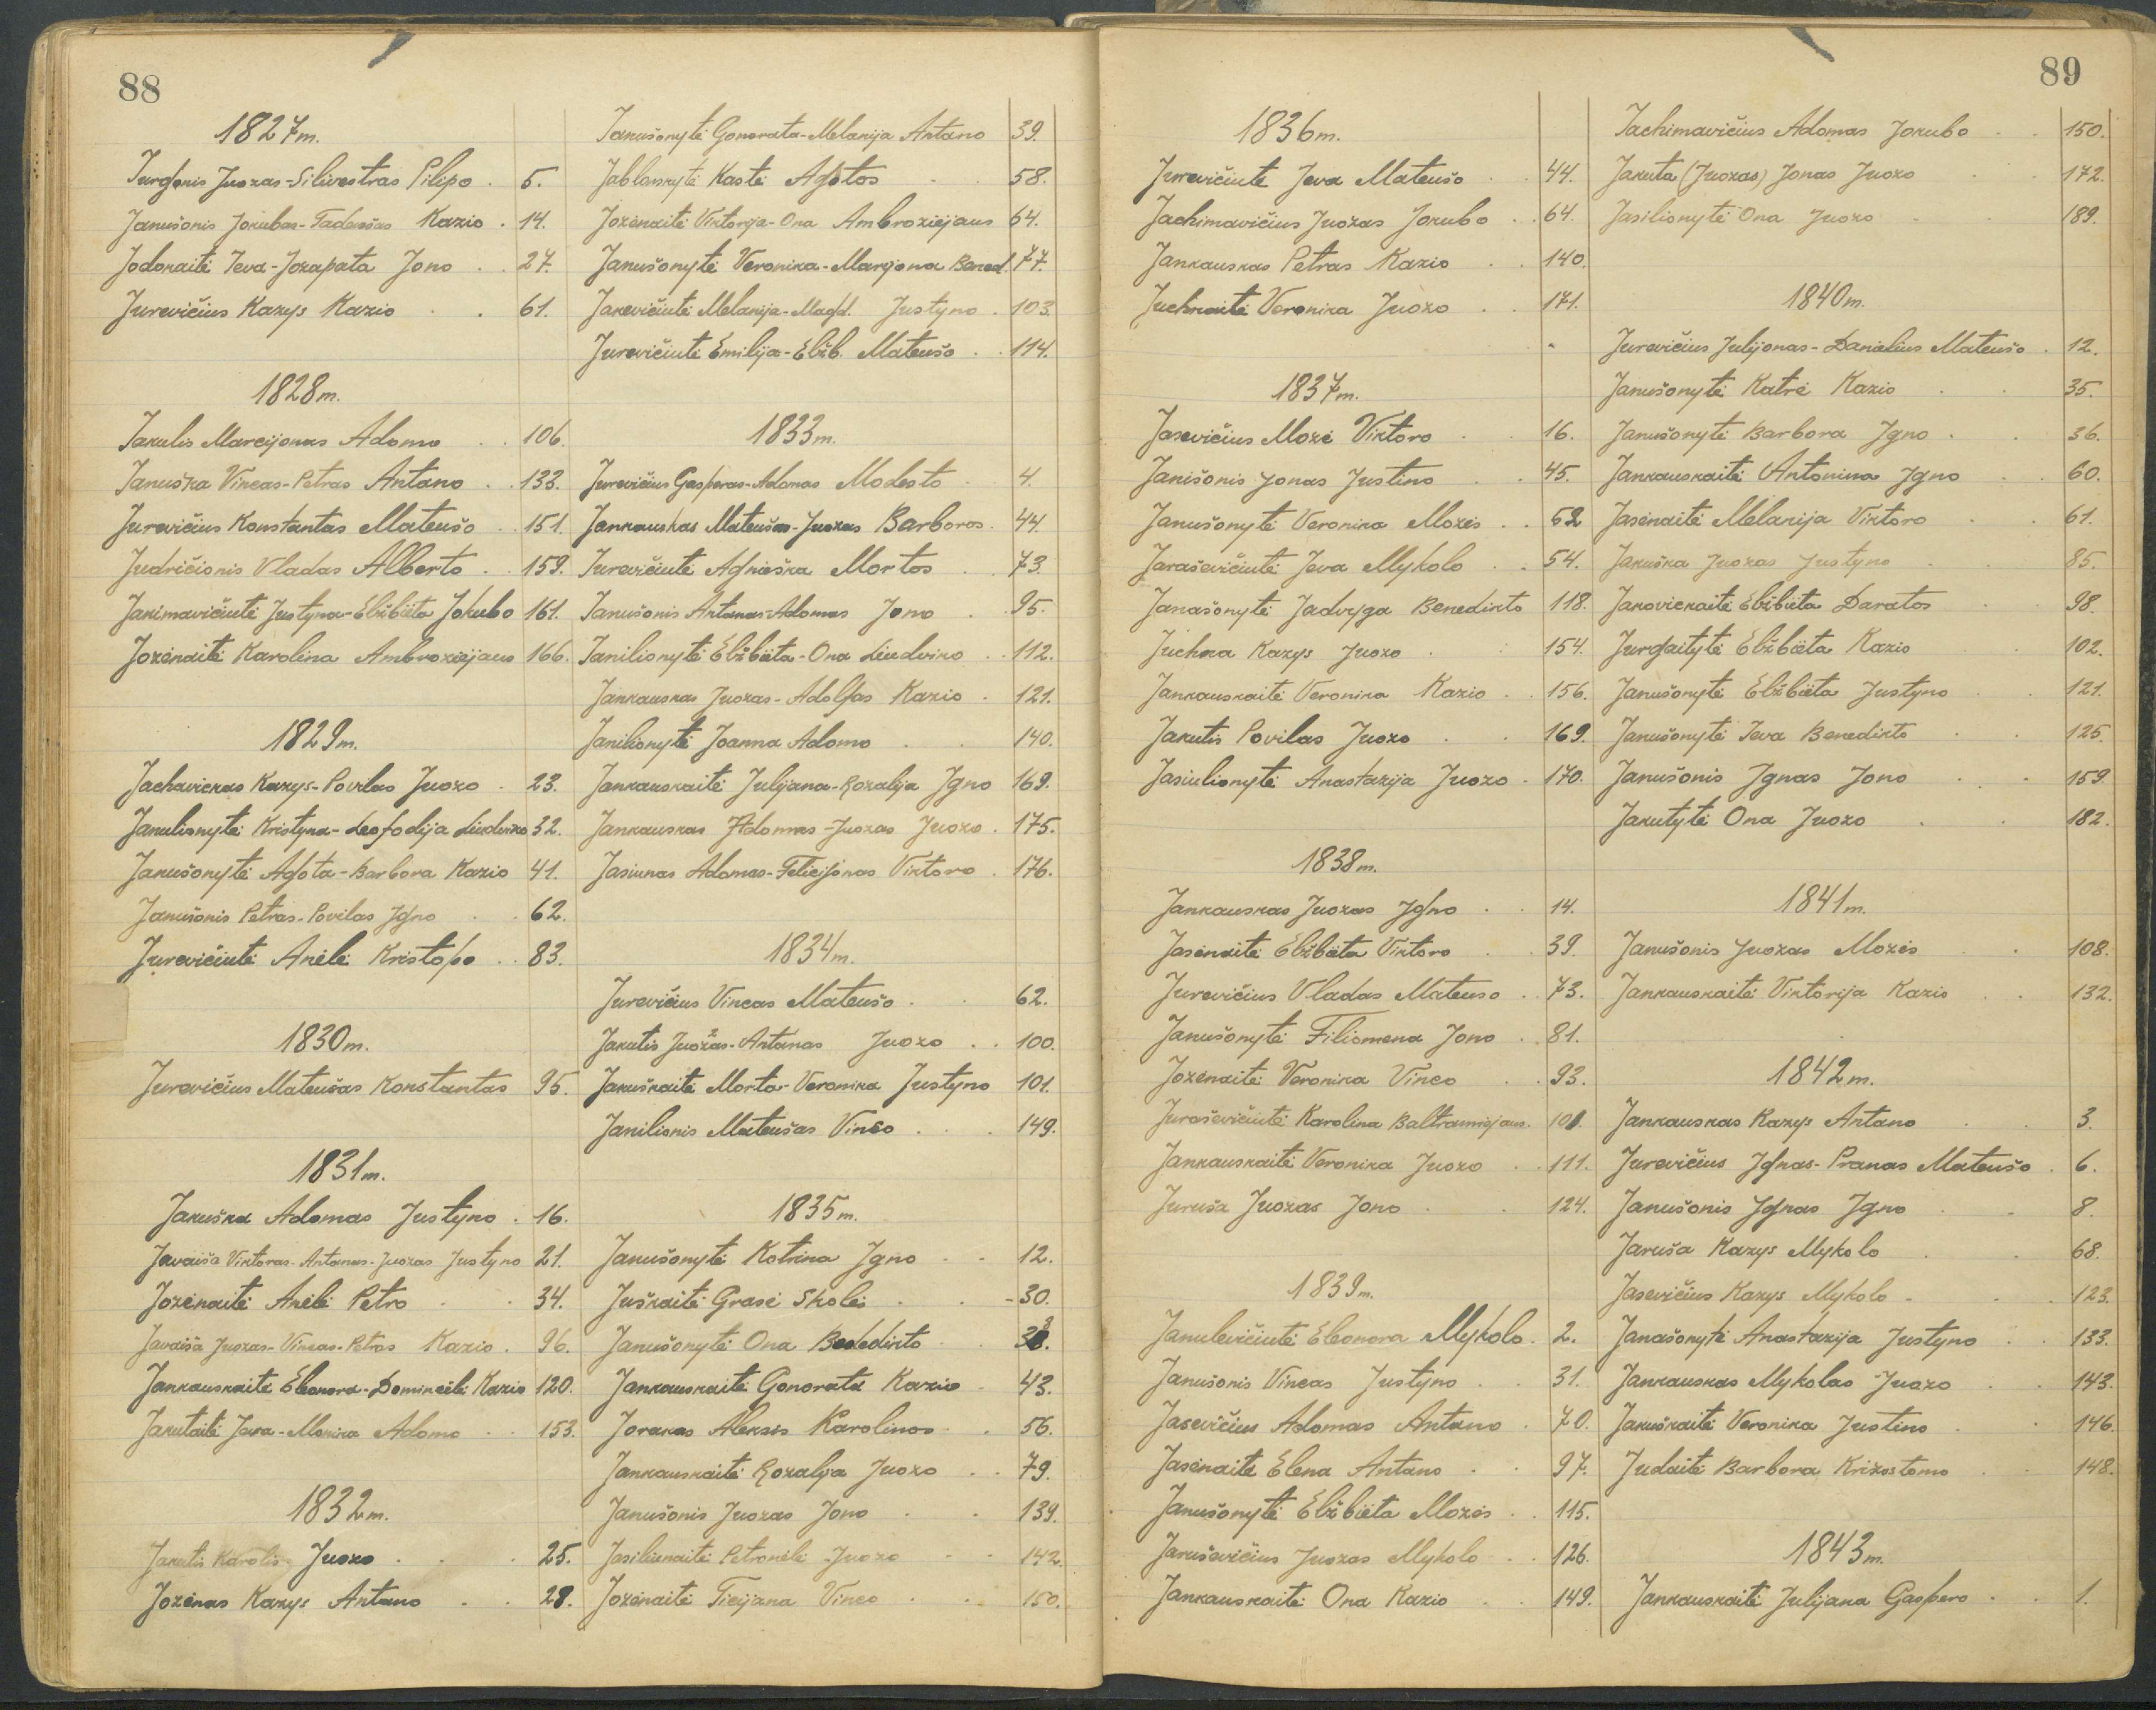 88
1827m.
Jurgonis Juozas-Silivestras Pilipo . 5.
Janušonis Jokubas-Tadeušas Kazio . 14.
Jodokaitė Ieva-Jozapata Jono . . 27.
Jurevičius Kazys Kazio . . 61.
1828m.
Jakulis Marcijonas Adomo . . 106.
Januška Vincas-Petras Antano . . 133.
Jurevičius Konstantas Mateušo . . 151.
Judričionis Vladas Alberto . . 159.
Jakimavičiutė Justyna-Elžbieta Jokubo 161.
Jozėnaitė Karolina Ambroziejaus 166.
1829m.
Jachavickas Kazys-Povilas Juozo . 23.
Janulionytė Kristyna-Leofodija Liudviko 32.
Janušonytė Agota-Barbora Kazio 41.
Janušonis Petras-Povilas Igno . . 62.
Jurevičiutė Anėlė Kristopo . . 83.
1830m.
Jurevičius Mateušas Konstantas 95.
1831m.
Jakuška Adomas Justyno . 16.
Javaiša Viktoras-Antanas-Juozas Justyno 21.
Jozėnaitė Anėlė Petro . . 34.
Javaiša Juozas-Vincas-Petras Kazio . 96.
Jankauskaitė Eleonora-Domincėlė Kazio 120.
Jakutaitė Jeva-Monika Adomo . . 153.
1832m.
Jakutis Karolis Juozo . . . 25.
Jozėnas Kazys Antano . . 28.
Janušonytė Gonorata-Melanija Antano 39.
Jablonskytė Kastė Agotos . 58.
Jozėnaitė Viktorija-Ona Ambroziejaus 64.
Janušonytė Veronika-Marijona Bened. 77.
Jakevičiutė Melanija-Magd. Justyno . 103.
Jurevičiutė Emilija-Elžb. Mateušo . . 114.
1833m.
Jurevičius Gasparas-Adomas Modesto . 4.
Jankauskas Mateušas-Juozas Barboros . 44.
Jurevičiutė Agnieška Mortos . 73.
Janušonis Antanas-Adomas Jono . . 95.
Janilionytė Elžbieta-Ona Liudviko . . 112.
Jankauskas Juozas-Adolfas Kazio . 121.
Janilionytė Joanna Adomo . . 140.
Jankauskaitė Julijana-Rozalija Igno 169.
Jankauskas Adomas-Juozas Juozo . 175.
Jasiunas Adomas-Felicijonas Viktoro . 176.
1834m.
Jurevičius Vincas Mateušo . . 62.
Jakutis Juozas-Antanas Juozo . . 100.
Jakuškaitė Morta-Veronika Justyno 101.
Janilionis Mateušas Vinco . . . 149.
1835m.
Janušonytė Kotrina Igno . . 12.
Juškaitė Grasė Skolės . . - 30.
Janušonytė Ona Benedikto .
Jankauskaitė Gonorata Kazio . 43.
Jorakas Aleksis Karolinos . . 56.
Jankauskaitė Rozalija Juozo . . 79.
Janušonis Juozas Jono . . 139.
Jasiliunaitė Petronėlė Juozo . . 142.
Jozėnaitė Ticijana Vinco . . 150.
89
1836m.
Jurevičiutė Jeva Mateušo . . 44.
Jachimavičius Juozas Jokubo . . 64.
Jankauskas Petras Kazio . . 140.
Juchnaitė Veronika Juozo . . 171.
1837m.
Jasevičius Mozė Viktoro . . 16.
Janišonis Jonas Justino . . 45.
Janušonytė Veronika Mozės . . 52
Jaraševičiutė Jeva Mykolo . . 54.
Janašonytė Jadvyga Benedikto 118.
Juchna Kazys Juozo . . 154.
Jankauskaitė Veronika Kazio . . 156.
Jakutis Povilas Juozo . . 169.
Jasiulionytė Anastazija Juozo . 170.
1838m.
Jankauskas Juozas Igno . . 14.
Jasėnaitė Elžbieta Viktoro . . 39.
Jurevičius Vladas Mateuso . . 73.
Janušonytė Filiomena Jono . . 81.
Jozėnaitė Veronika Vinco . . 93.
Juraševičiutė Karolina Baltramiejaus. 101.
Jankauskaitė Veronika Juozo . . 111.
Juruša Juozas Jono . . 124.
1839m.
Janulevičiutė Eleonora Mykolo . 2.
Janušonis Vincas Justyno . . 31.
Jasevičius Adomas Antano . 70.
Jasėnaitė Elena Antano . . 97.
Janušonytė Elžbieta Mozės . . 115.
Jaruševičius Juozas Mykolo . . 126.
Jankauskaitė Ona Kazio . . 149.
Jachimavičius Adomas Jokubo . . 150.
Jakuta (Juozas) Jonas Juozo . . 172.
Jasilionytė Ona Juozo . . 189.
1840m.
Jurevičius Julijonas-Danielius Mateušo . 12.
Janušonytė Katrė Kazio . . 35.
Janušonytė Barbora Igno . . 36.
Jankauskaitė Antonina Igno . . 60.
Jasėnaitė Melanija Viktoro . . 61.
Jakuška Juozas Justyno . . 85.
Jakovickaitė Elžbieta Daratos . . 98.
Jurgaitytė Elžbieta Kazio . 102.
Janušonytė Elžbieta Justyno . . 121.
Janušonytė Ieva Benedikto . . 125.
Janušonis Ignas Jono . . 159.
Jakutytė Ona Juozo . . 182.
1841m.
Janušonis Juozas Mozės . . 108.
Jankauskaitė Viktorija Kazio . . 132.
1842m.
Jankauskas Kazys Antano . . 3.
Jurevičius Ignas-Pranas Mateušo . 6.
Janušonis Ignas Igno . . 8.
Jaruša Kazys Mykolo . . 68.
Jasevičius Kazys Mykolo . . . 123.
Janašonytė Anastazija Justyno . . 133.
Jankauskas Mykolas Juozo . . 143.
Jakuškaitė Veronika Justino . . 146.
Judaitė Barbora Krizostomo . . 148.
1843m.
Jankauskaitė Julijana Gaspero . . 1.